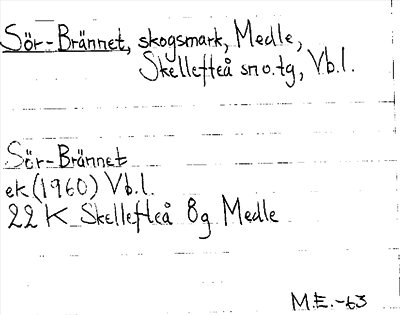 Sör-Brännet, skogsmark, Medle,
Skellefteå sn o. tg, Vb.l.
Sör-Brännet
ek (1960) Vb.l.
22 K Skellefteå 8g Medle
M.E.-63